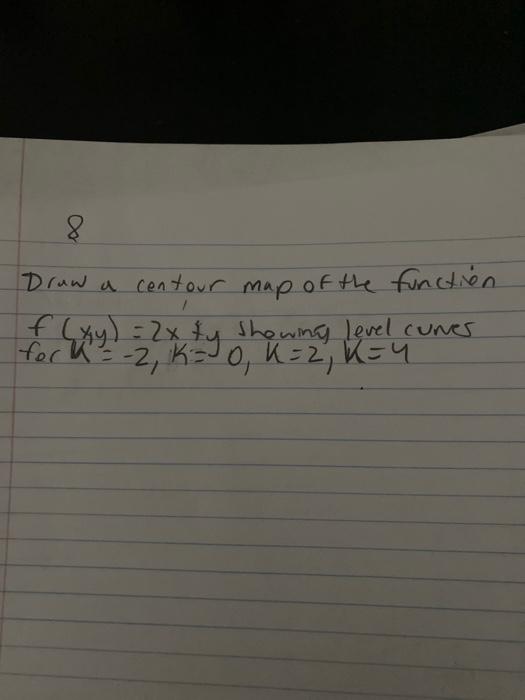 8
Draw a centour map of the function
f (x,y) = 2x + y showing level curves
for K = -2, K = 0, K = 2, K = 4